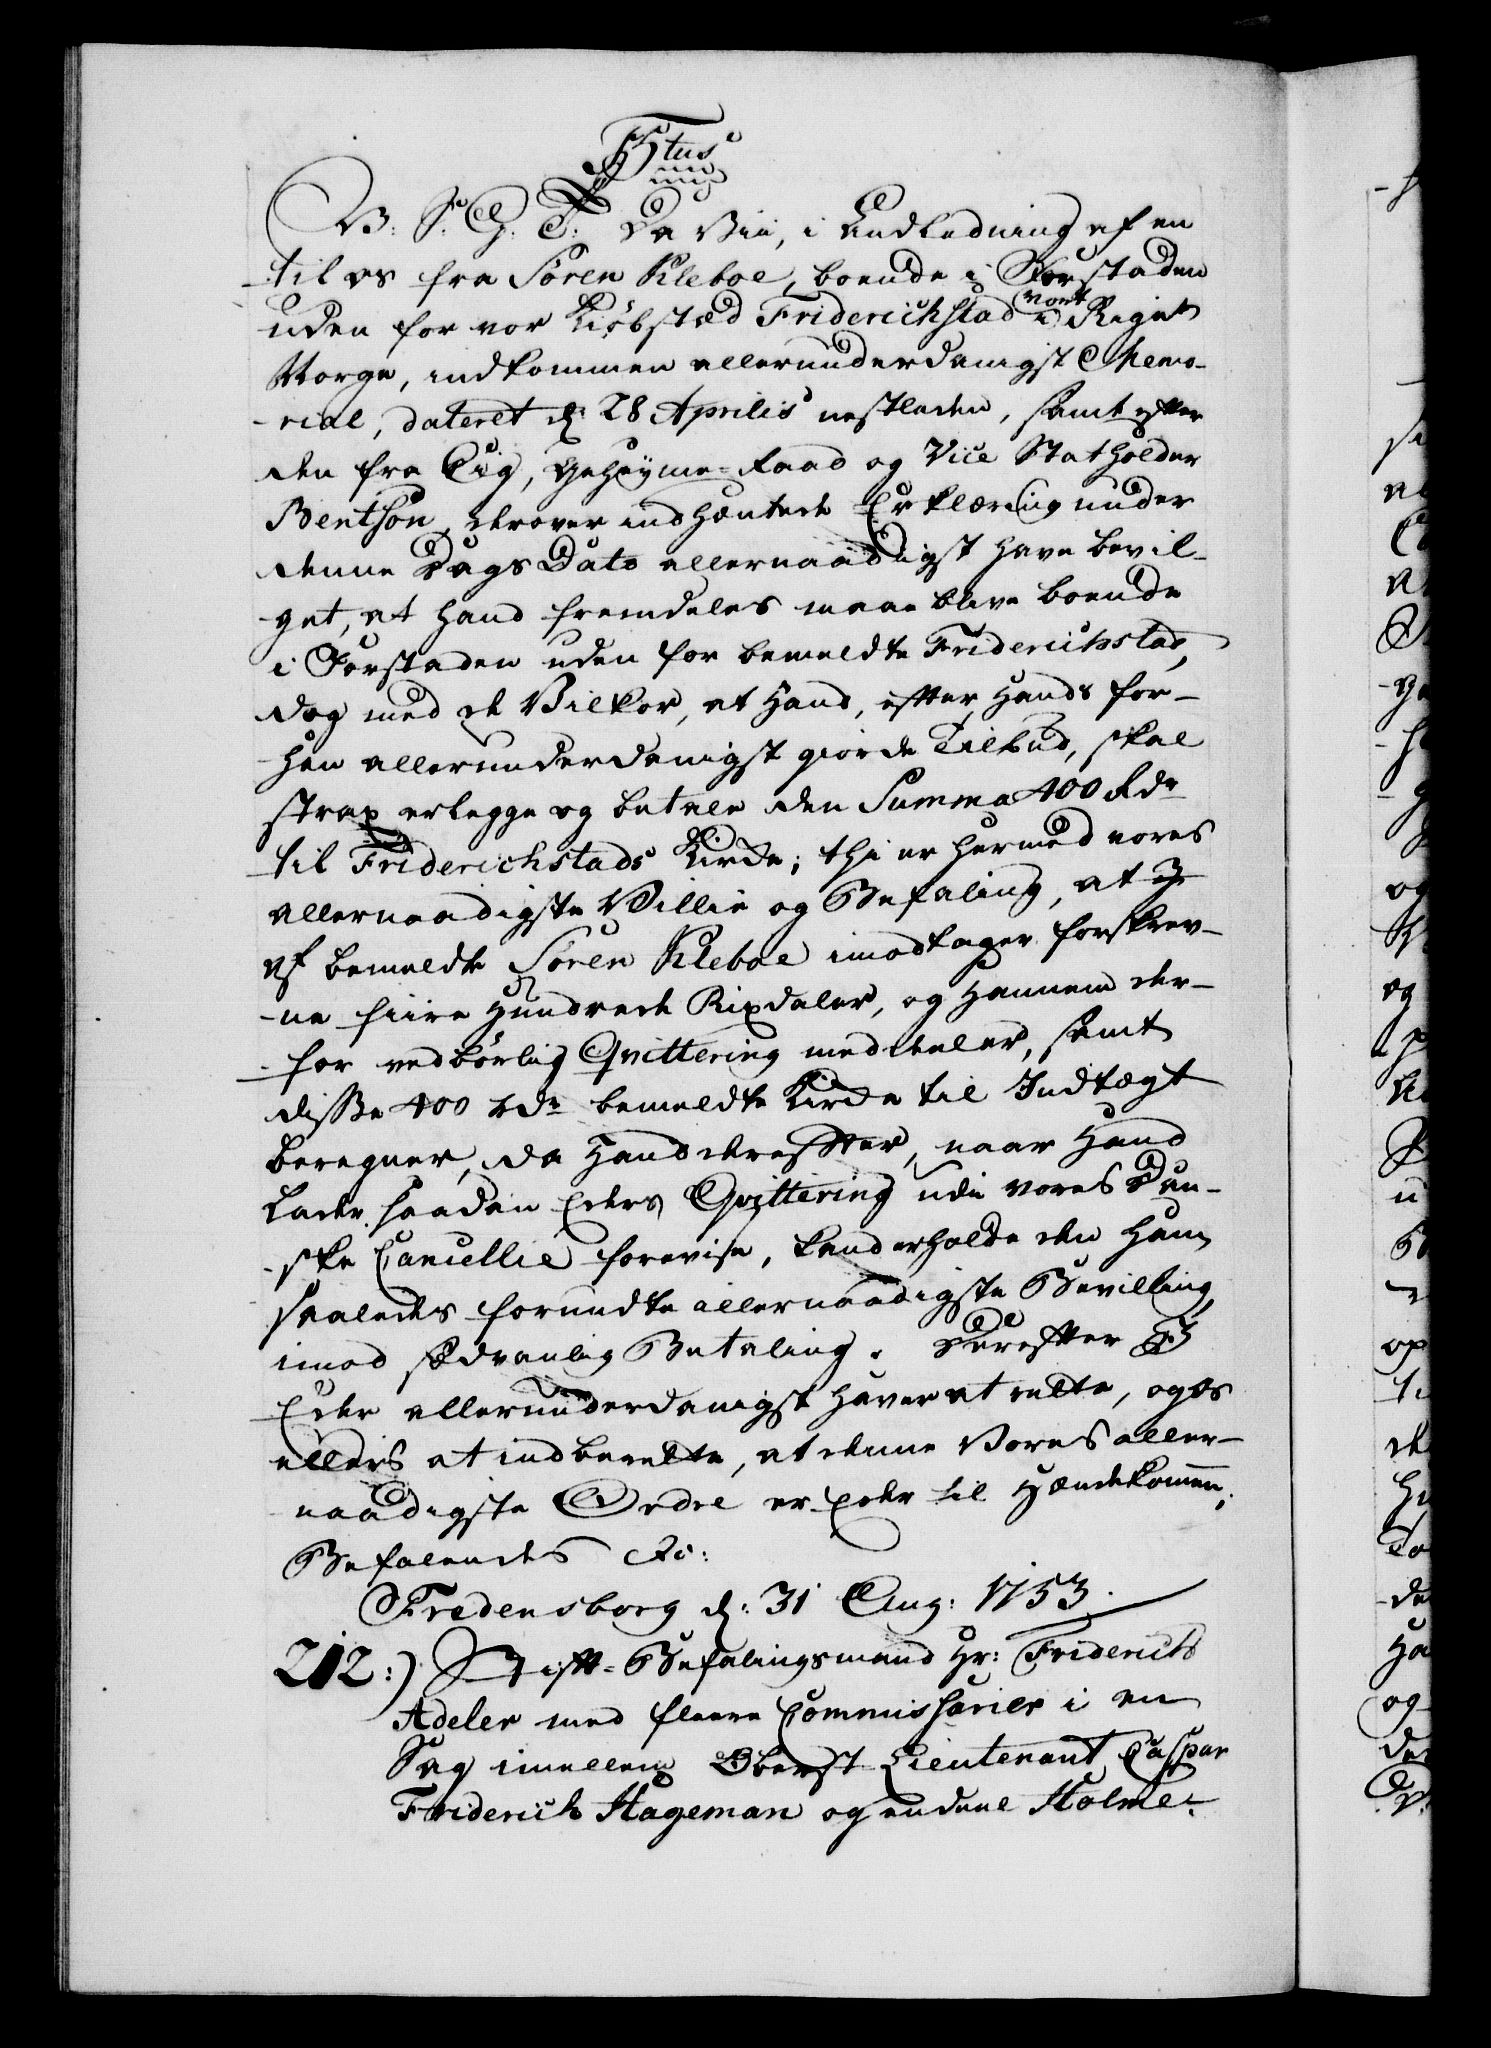 F5tus
V: S: G: T: Da Vii, i Andledning af en
til os fra Sören Kleboe, boende i Forstaden
uden for vor Kiøbstæd Friderichstad i vort Riget
Norge, indkommen allerunderdanigst Memo-
-rial, dateret d: 28 Aprilis nestleden, samt efter
den fra Dig, Geheyme-Raad og Vice Statholder
Bentson, derover indhentede Erklæring under
denne Dags Dato allernaadigst have bevil-
-get, at hand fremdeles maae blive boende
i Forstaden uden for bemeldte Friderichstad,
dog med de Vilkor, at Hand, efter Hands for-
-hen allerunderdanigst giorde Tilbud, skal
strax erlegge og betale den Summa 400 Rdr
til Friderichstads Kirke; thi er hermed vores
allernaadigste Villie og Befaling, at I
af bemeldte Sören Kleboe imodtager forskrev-
-ne fiire Hundrede Rixdaler, og Hannem der-
-for vedbørlig Qvittering meddeeler, samt
disse 400 rdr bemeldte Kirke til Indtægt
beregner, da Hand derefter, naar Hand
lader saadan Eders Qvittering udi vores Dan-
-ske Cancellie forevise, kand erholde den Ham
saaledes forundte allernaadigste Bevilling,
imod sædvanlig Betaling. Derefter I
Eder allerunderdanigst haver at rette, og os
ellers at indberette, at denne Vores aller-
naadigste Ordre er Eder til Hændekommen;
Befalendes Etc:
Fredensborg d: 31 Aug: 1753.
212:) Stift-Befalingsmand Hr: Friderich
Adeler med fleere Commissarier i en
Sag imellem Oberst-Lieutenant Caspar
Friderich Hageman og endeel Holme-